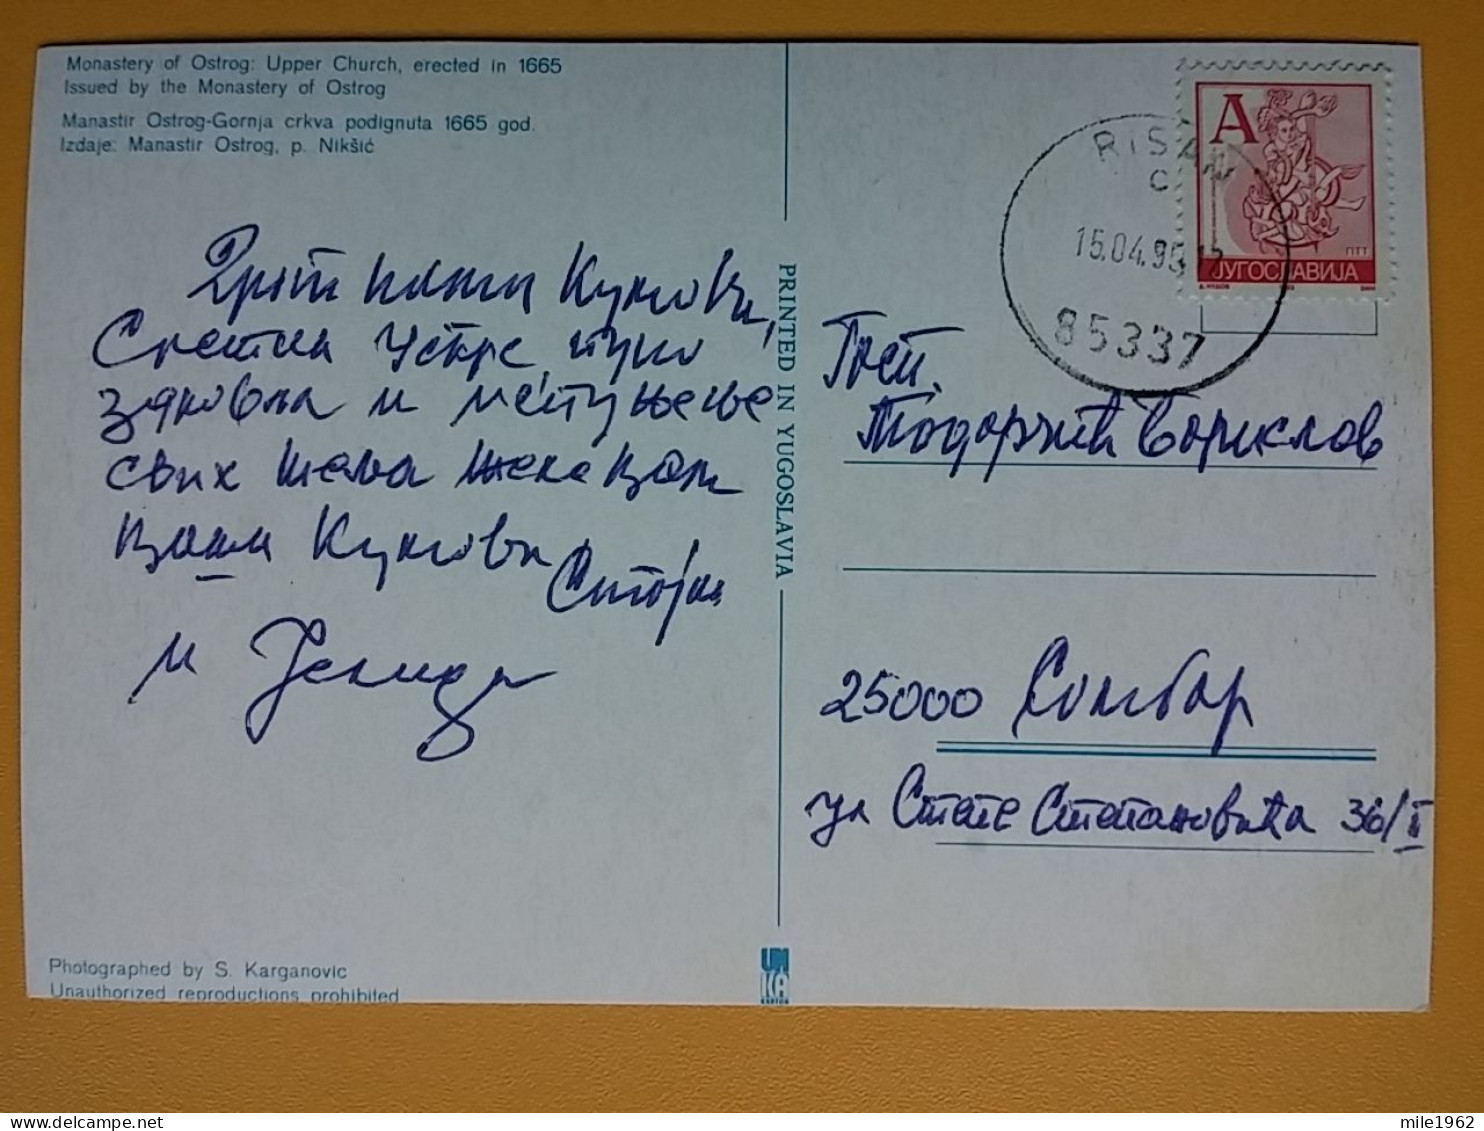 Monastery of Ostrog: Upper Church, erected in 1665
Issued by the Monastery of Ostrog
Manastir Ostrog-Gornja crkva podignuta 1665 god.
Izdaje: Manastir Ostrog, p. Nikšić
Драги наши Кумови,
Сретна Ускрс, пуно
здравља и испуњење
свих жеља желе вам
ваши Кумови Стоја
и
PRINTED IN YUGOSLAVIA
А
ПТТ
ЈУГОСЛАВИЈА
RISAN
C
15.04.99.12
85337
Тодорчић Борислав
25000 Сомбор
ул Степе Степановића 36/I
Photographed by S. Karganovic
Unauthorized reproductions prohibited
UNI
KA
KARTON
mile1962